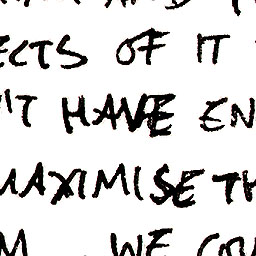 ECTS OF IT
'T HAVE EN
MAXIMISE TH
M.. WE COU